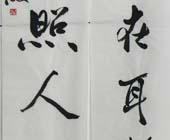 在耳
照人